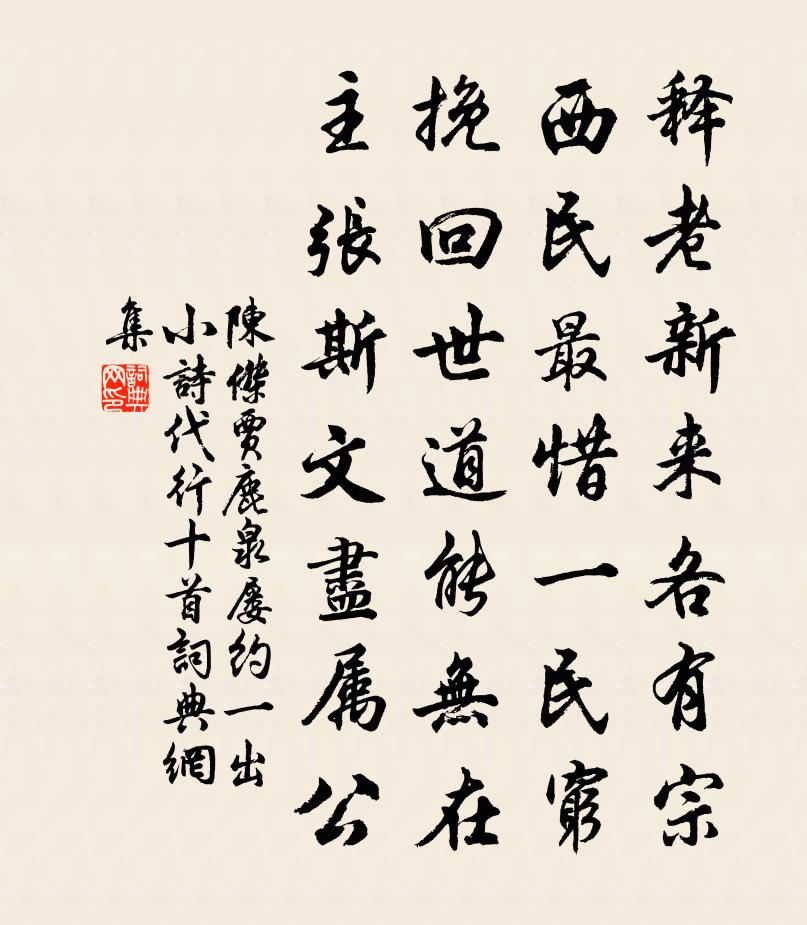 释老新来各有宗
西民最惜一民窮
挽回世道能無在
主張斯文盡属公
陳傑賈鹿泉屡約一出
小詩代行十首詞典網
集
詞典网印